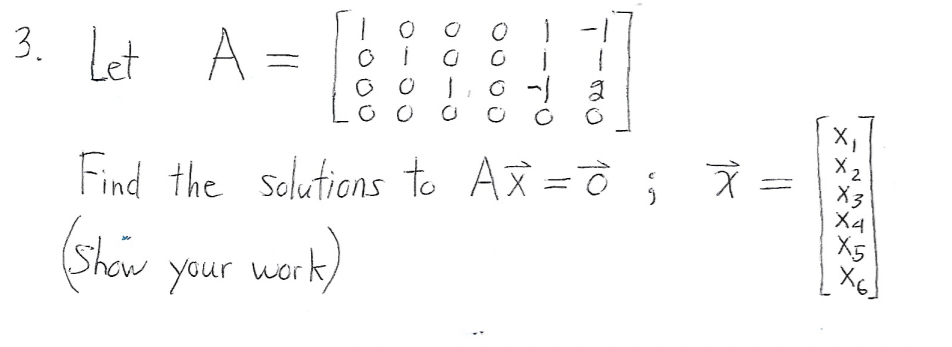 3. Let A = [1 0 0 0 1 -1
0 1 0 0 1 1
0 0 1 0 -1 2
0 0 0 0 0 0]
Find the solutions to Ax⃗ = 0⃗ ; x⃗ = [x₁ x₂ x₃ x₄ x₅ x₆]
(Show your work)